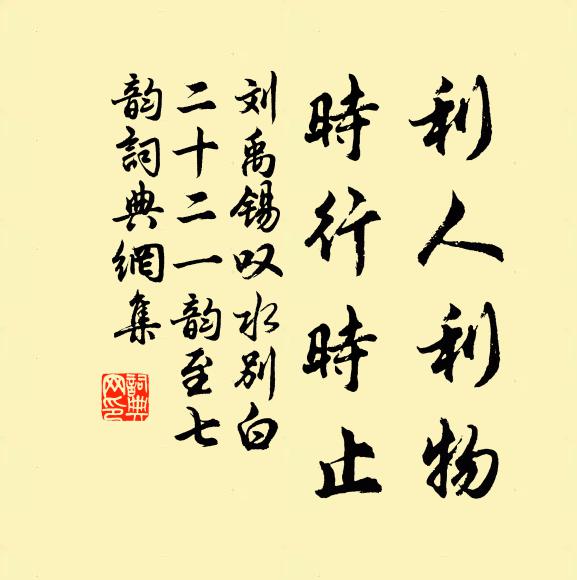 利人利物
時行時止
刘禹锡叹水别白
二十二一韵至七
韵詞典網集
詞典網印